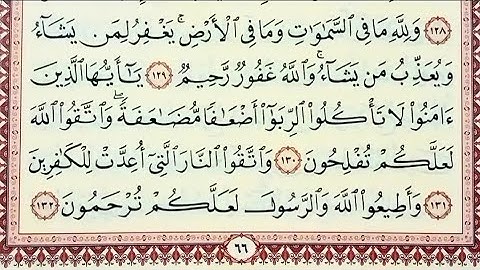 ١٢٨ وَلِلَّهِ مَا فِي ٱلسَّمَٰوَٰتِ وَمَا فِي ٱلْأَرْضِۚ يَغْفِرُ لِمَن يَشَآءُ
وَيُعَذِّبُ مَن يَشَآءُۚ وَٱللَّهُ غَفُورٌ رَّحِيمٌ ١٢٩ يَٰٓأَيُّهَا ٱلَّذِينَ
ءَامَنُوا۟ لَا تَأْكُلُوا۟ ٱلرِّبَوٰٓا۟ أَضْعَٰفًا مُّضَٰعَفَةًۖ وَٱتَّقُوا۟ ٱللَّهَ
لَعَلَّكُمْ تُفْلِحُونَ ١٣٠ وَٱتَّقُوا۟ ٱلنَّارَ ٱلَّتِيٓ أُعِدَّتْ لِلْكَٰفِرِينَ
١٣١ وَأَطِيعُوا۟ ٱللَّهَ وَٱلرَّسُولَ لَعَلَّكُمْ تُرْحَمُونَ ١٣٢
٦٦